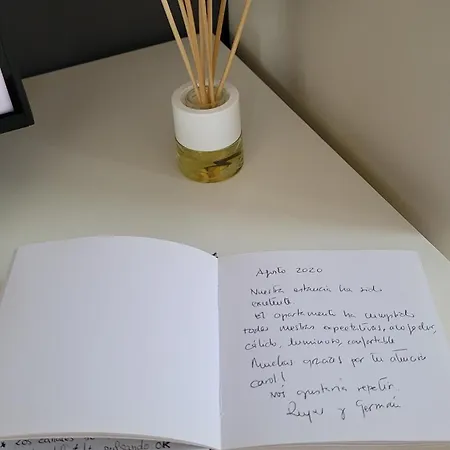 Agosto 2020
Nuestra estancia ha sido
excelente.
El apartamento ha cumplido
todas nuestras expectativas, acogedor,
cálido, luminoso, confortable
Muchas gracias por tu atención
Carol!
Nos gustaría repetir.
y Germán
* Los canales se
pulsando OK